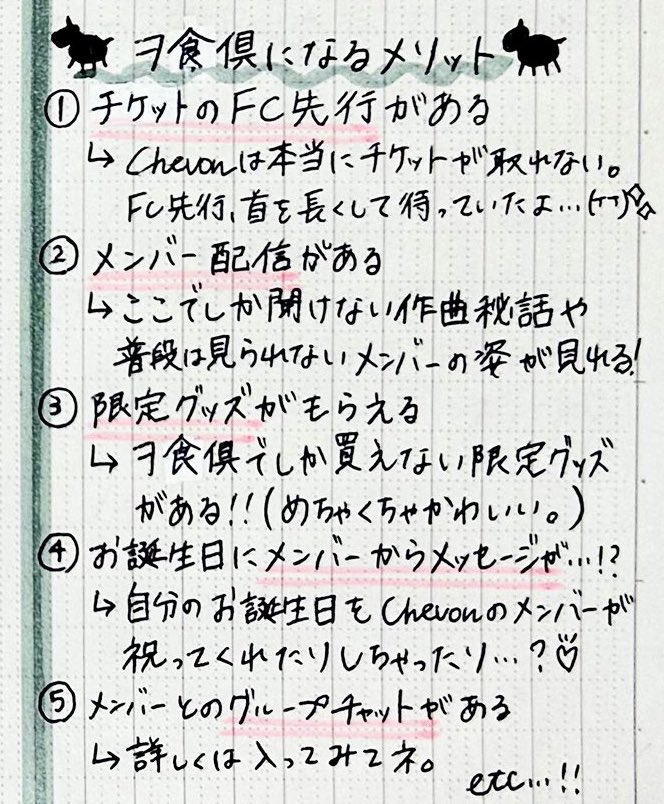 ヲ食倶になるメリット
① チケットのFC先行がある
↳ Chevonは本当にチケットが取れない。
FC先行、首を長くして待っていたよ…(TT)
② メンバー配信がある
↳ ここでしか聞けない作曲秘話や
普段は見られないメンバーの姿が見れる!
③ 限定グッズがもらえる
↳ ヲ食倶でしか買えない限定グッズ
がある!!(めちゃくちゃかわいい。)
④ お誕生日にメンバーからメッセージが…!?
↳ 自分のお誕生日をChevonのメンバーが
祝ってくれたりしちゃったり…?♡
⑤ メンバーとのグループチャットがある
↳ 詳しくは入ってみてネ。
etc…!!